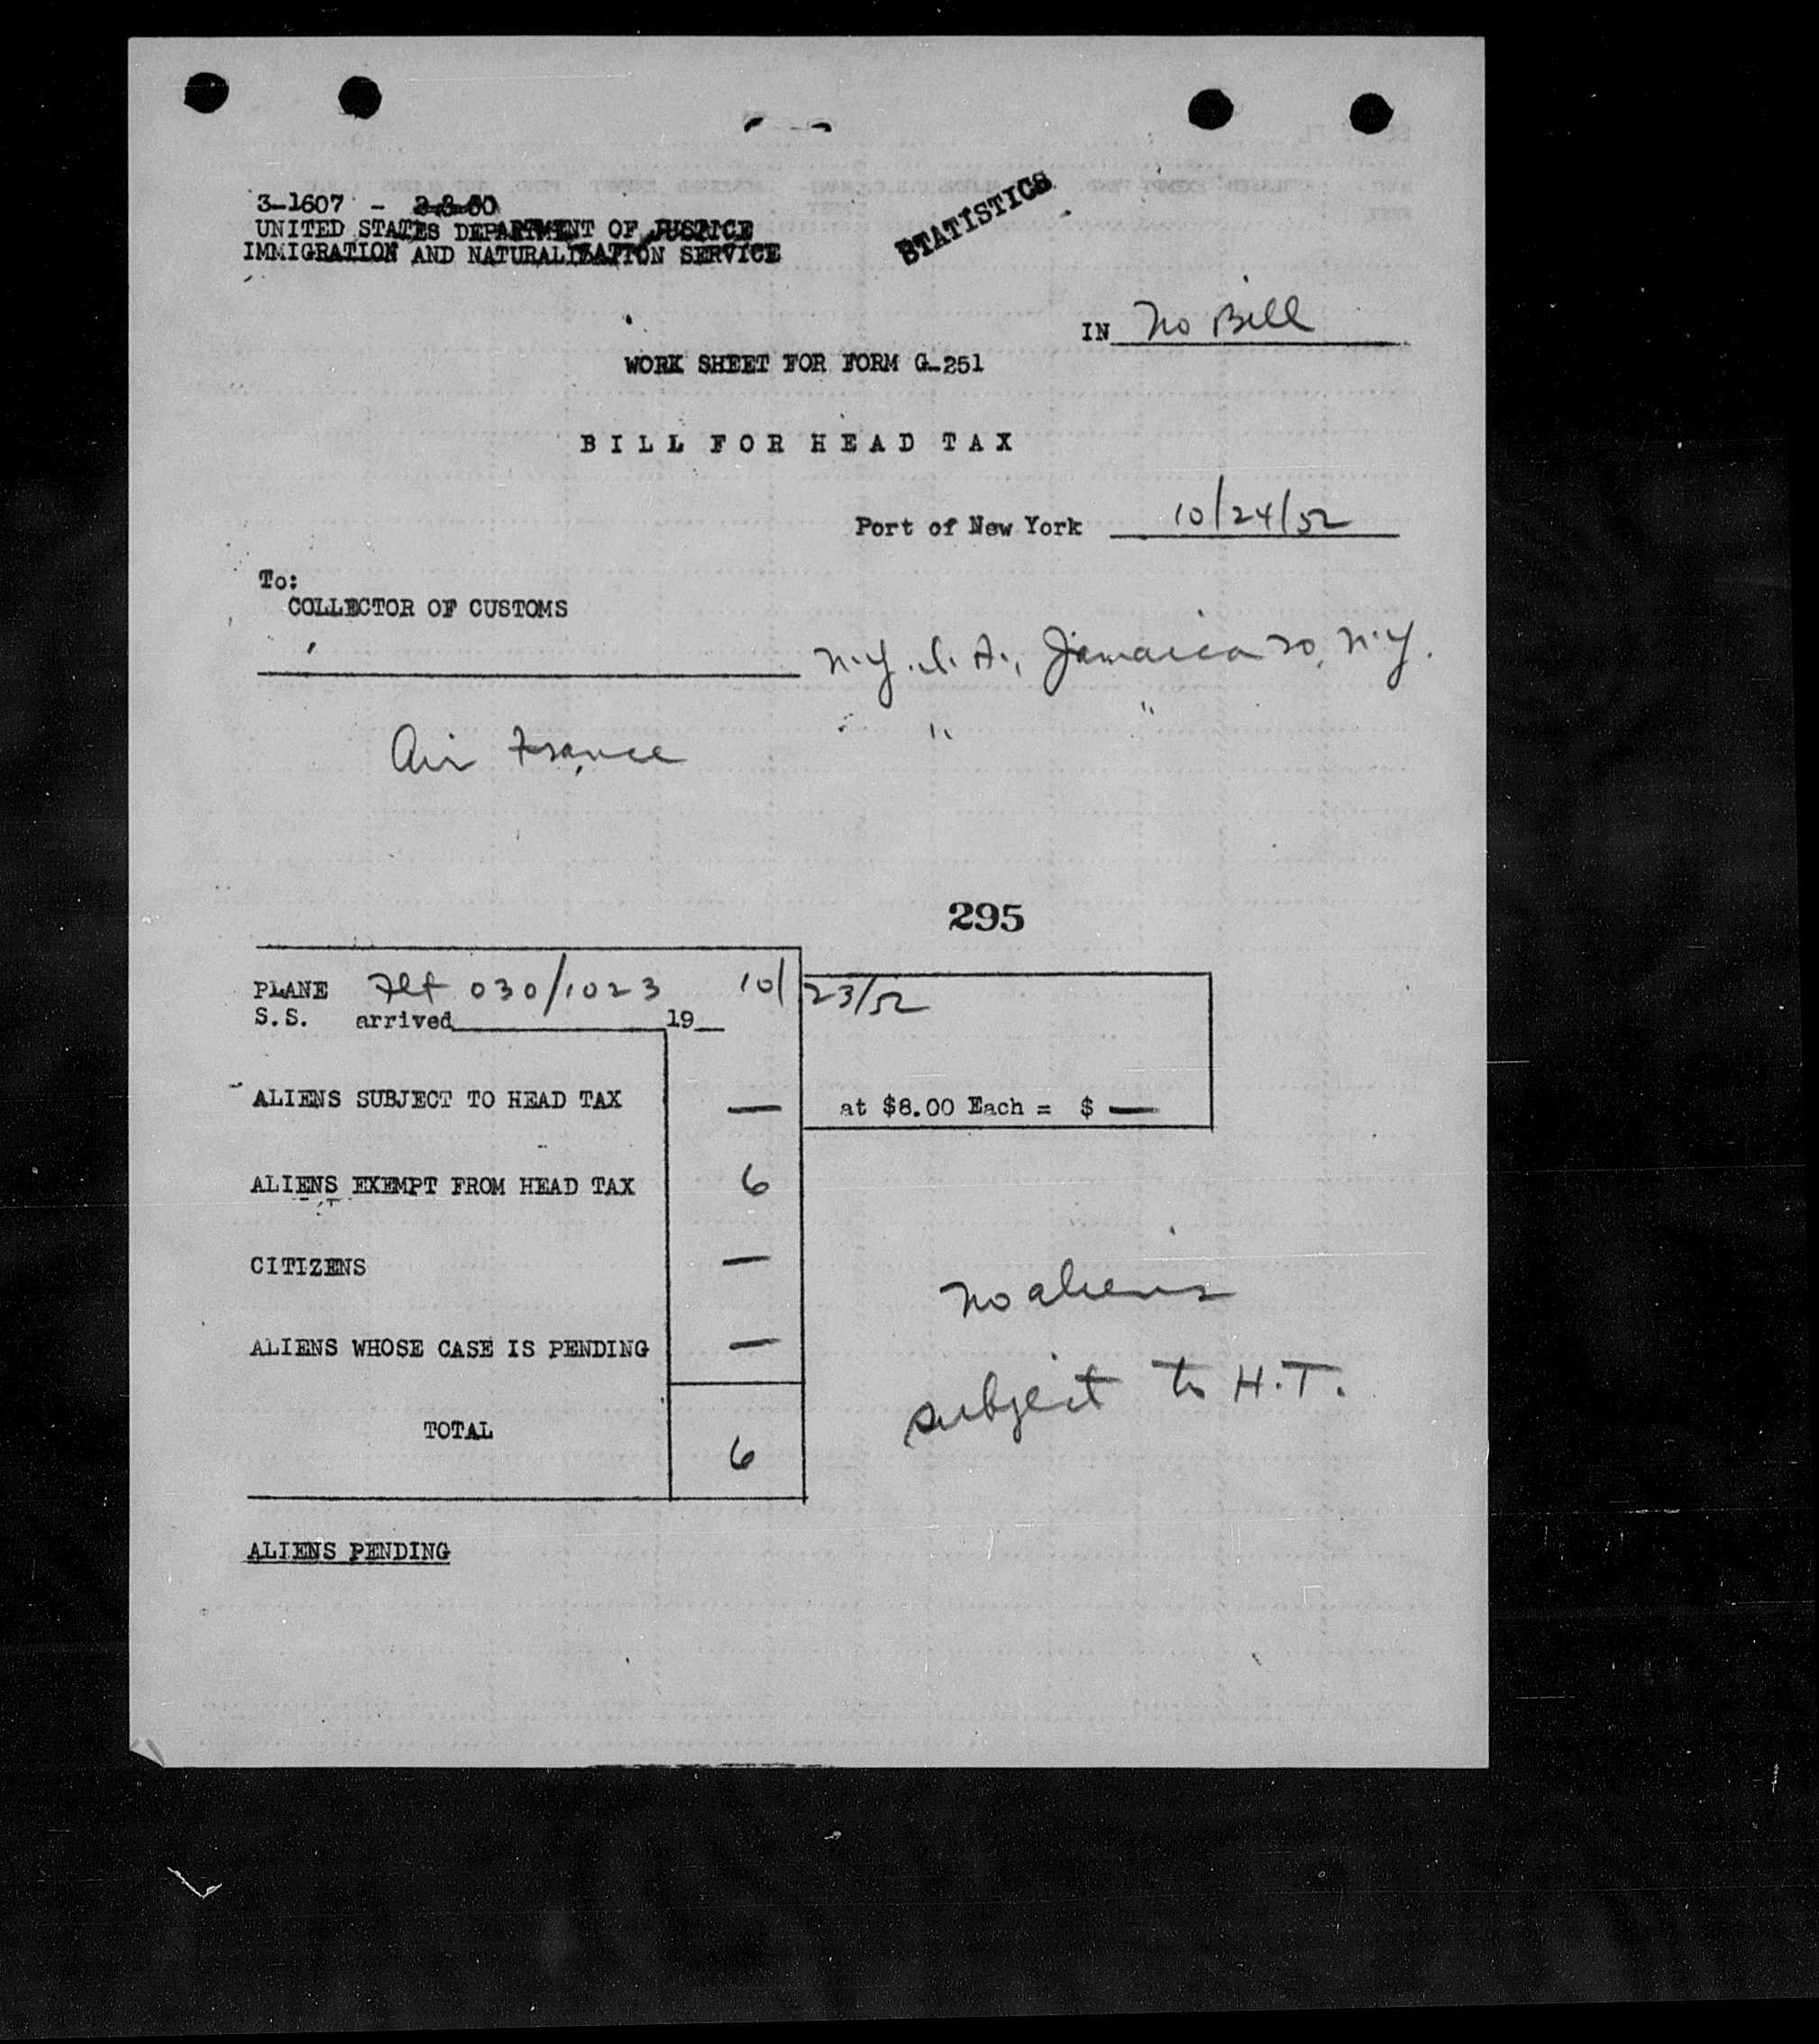 3-1607 - 2-3-50
UNITED STATES DEPARTMENT OF JUSTICE
IMMIGRATION AND NATURALIZATION SERVICE
STATISTICS
IN No Bill
WORK SHEET FOR FORM G-251
BILL FOR HEAD TAX
Port of New York 10/24/52
To:
COLLECTOR OF CUSTOMS
N.Y.I.A., Jamaica 30, N.Y.
Air France " "
295
PLANE Flt 030/1023 10/23/52
S.S. arrived 19
ALIENS SUBJECT TO HEAD TAX — at $8.00 Each = $ —
ALIENS EXEMPT FROM HEAD TAX 6
CITIZENS —
No aliens
ALIENS WHOSE CASE IS PENDING —
subject to H.T.
TOTAL 6
ALIENS PENDING